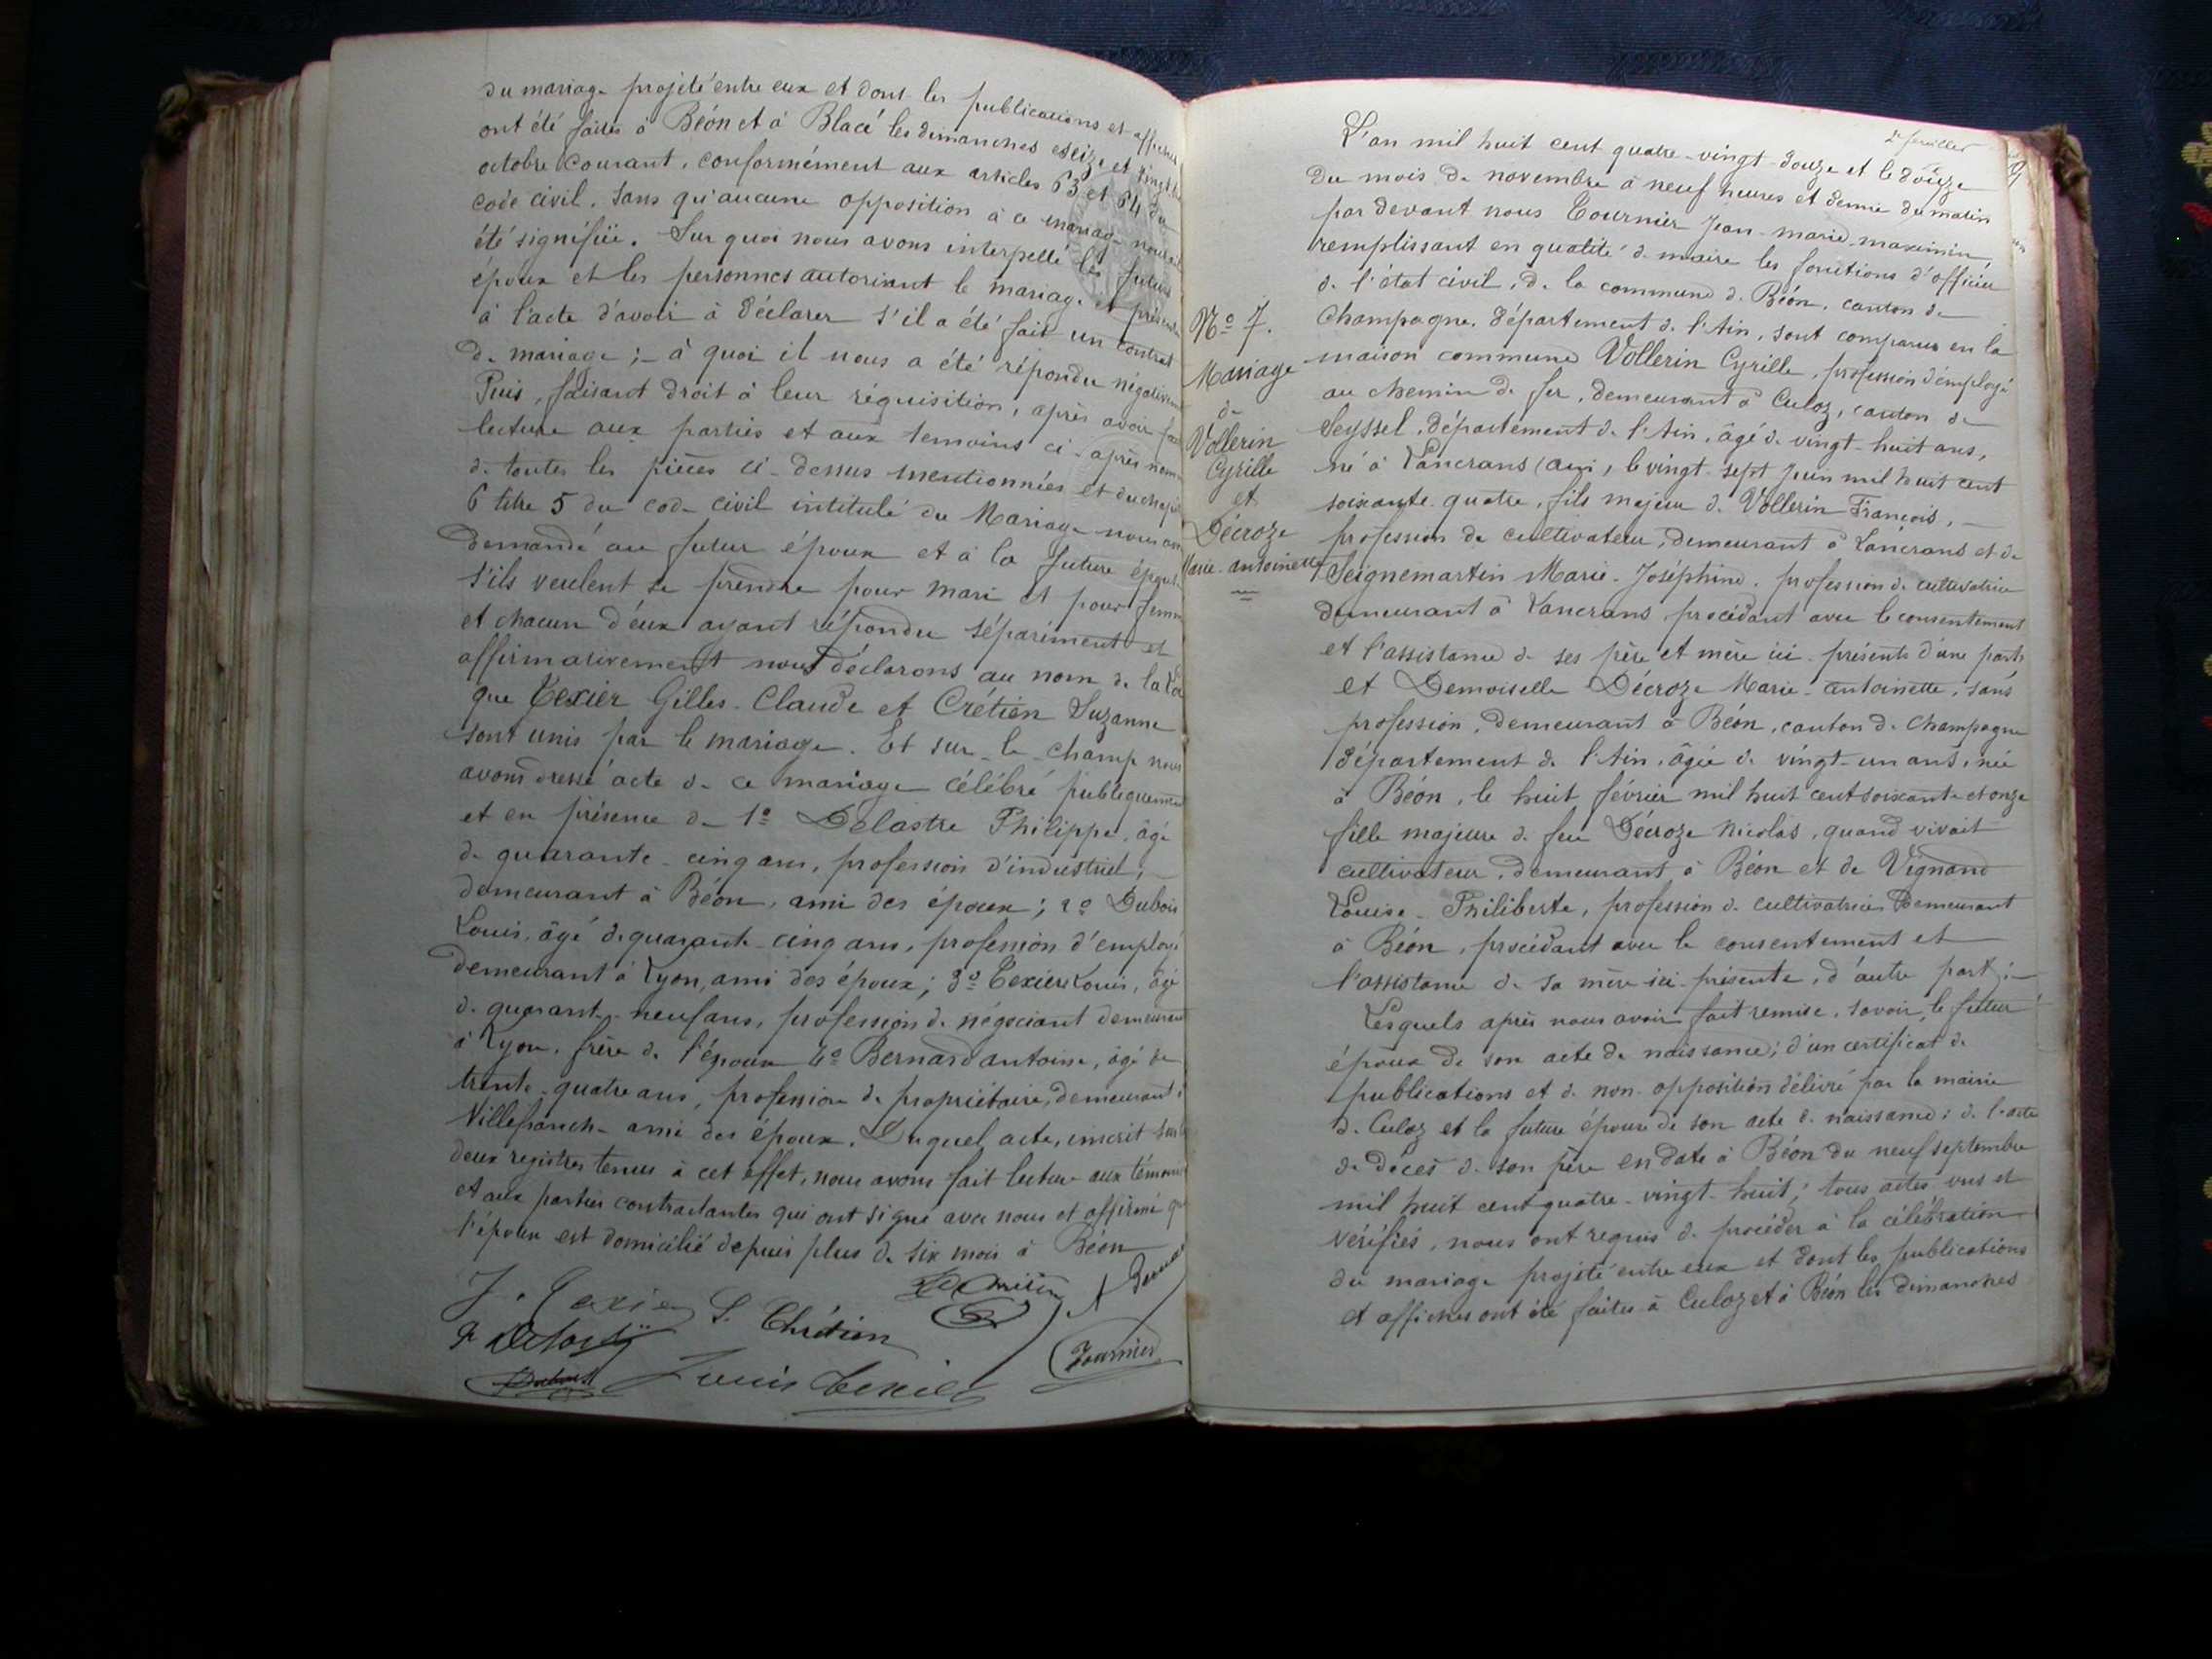 du mariage projeté entre eux et dont les publications et affiches
ont été faites à Béon et à Blacé les dimanches seize et vingt
octobre courant, conformément aux articles 63 et 64 du
code civil, sans qu'aucune opposition à ce mariage nous ait
été signifiée. Sur quoi nous avons interpellé les futurs
époux et les personnes autorisant le mariage et présentes
à l'acte d'avoir à déclarer s'il a été fait un contrat
de mariage ; - à quoi il nous a été répondu négativement
Puis, faisant droit à leur réquisition, après avoir fait
lecture aux parties et aux temoins ci-après nommés
de toutes les pièces ci-dessus mentionnées et du chapitre
6 titre 5 du code civil intitulé du Mariage nous avons
demandé au futur époux et à la future épouse
s'ils veulent se prendre pour mari et pour femme
et chacun d'eux ayant répondu séparément et
affirmativement nous déclarons au nom de la Loi
que Texier Gilles-Claude et Crétien Suzanne
sont unis par le mariage. Et sur-le-champ nous
avons dressé acte de ce mariage célébré publiquement
et en présence de 1º Delastre Philippe, âgé
de quarante-cinq ans, profession d'industriel, -
demeurant à Béon, ami des époux ; 2º Dubois
Louis, âgé de quarante-cinq ans, profession d'employé
demeurant à Lyon, ami des époux ; 3º Texier Louis, âgé
de quarante-neuf ans, profession de négociant demeurant
à Lyon, frère de l'époux 4º Bernard antoine, âgé de
trente-quatre ans, profession de propriétaire, demeurant à
Villefranche ami des époux. Duquel acte, inscrit sur les
deux registres tenus à cet effet, nous avons fait lecture aux témoins
et aux parties contractantes qui ont signé avec nous et affirmé que
l'époux est domicilié depuis plus de six mois à Béon
S. Chrétien
Louis Texier
Tournier
2e feuillet
Nº 7.
Mariage
de
Vollerin
Cyrille
et
Décroze
Marie-antoinette
L'an mil huit cent quatre-vingt-douze et le douze
du mois de novembre à neuf heures et demie du matin
par devant nous Tournier Jean-marie-maximin,
remplissant en qualité de maire les fonctions d'officier
de l'état civil, de la commune de Béon, canton de
Champagne, département de l'Ain, sont comparus en la
maison commune Vollerin Cyrille, profession d'employé
au chemin de fer, demeurant à Culoz, canton de
Seyssel, département de l'Ain, âgé de vingt-huit ans,
né à Lancrans (ain), le vingt-sept juin mil huit cent
soixante-quatre, fils majeur de Vollerin François, -
profession de cultivateur, demeurant à Lancrans et de
Seignemartin Marie-Joséphine, profession de cultivatrice
demeurant à Lancrans, procédant avec le consentement
et l'assistance de ses père et mère ici présents d'une part
et Demoiselle Décroze Marie-antoinette, sans
profession, demeurant à Béon, canton de Champagne
département de l'Ain, âgée de vingt-un ans, née
à Béon, le huit février mil huit cent soixante et onze
fille majeure de feu Décroze Nicolas, quand vivait
cultivateur, demeurant à Béon et de Vignand
Louise-Philiberte, profession de cultivatrice demeurant
à Béon, procédant avec le consentement et
l'assistance de sa mère ici-présente, d'autre part ; -
Lesquels après nous avoir fait remise, savoir, le futur
époux de son acte de naissance ; d'un certificat de
publications et de non-opposition délivré par la mairie
de Culoz et la future épouse de son acte de naissance ; de l'acte
de décès de son père en date à Béon du neuf septembre
mil huit cent quatre-vingt-huit ; tous actes vus et
vérifiés, nous ont requis de procéder à la célébration
du mariage projeté entre eux et dont les publications
et affiches ont été faites à Culoz et à Béon les dimanches